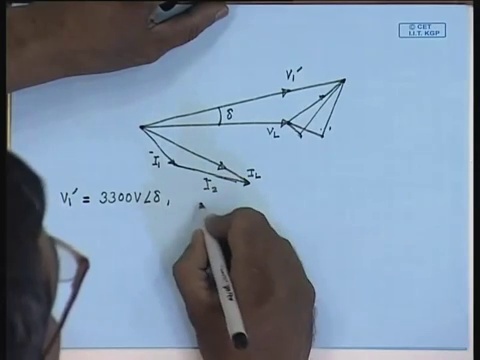 © CET
I.I.T. KGP
V₁′
δ
V_L
I₁
I₂
I_L
V₁′ = 3300V∠δ,